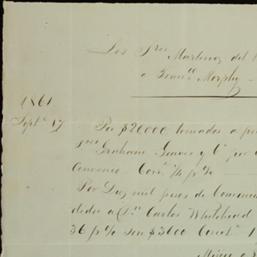 Los Sres Martinez del
a Franco Morphy
1861
Septe 17 Por $20000 tomados a
Sres Graham Geaves y Ca por
Convenio Corre 1/4 p%
Por Diez mil pesos de
dado a Dn Carlos Whitehead
36 p% son $3600 Corre 1